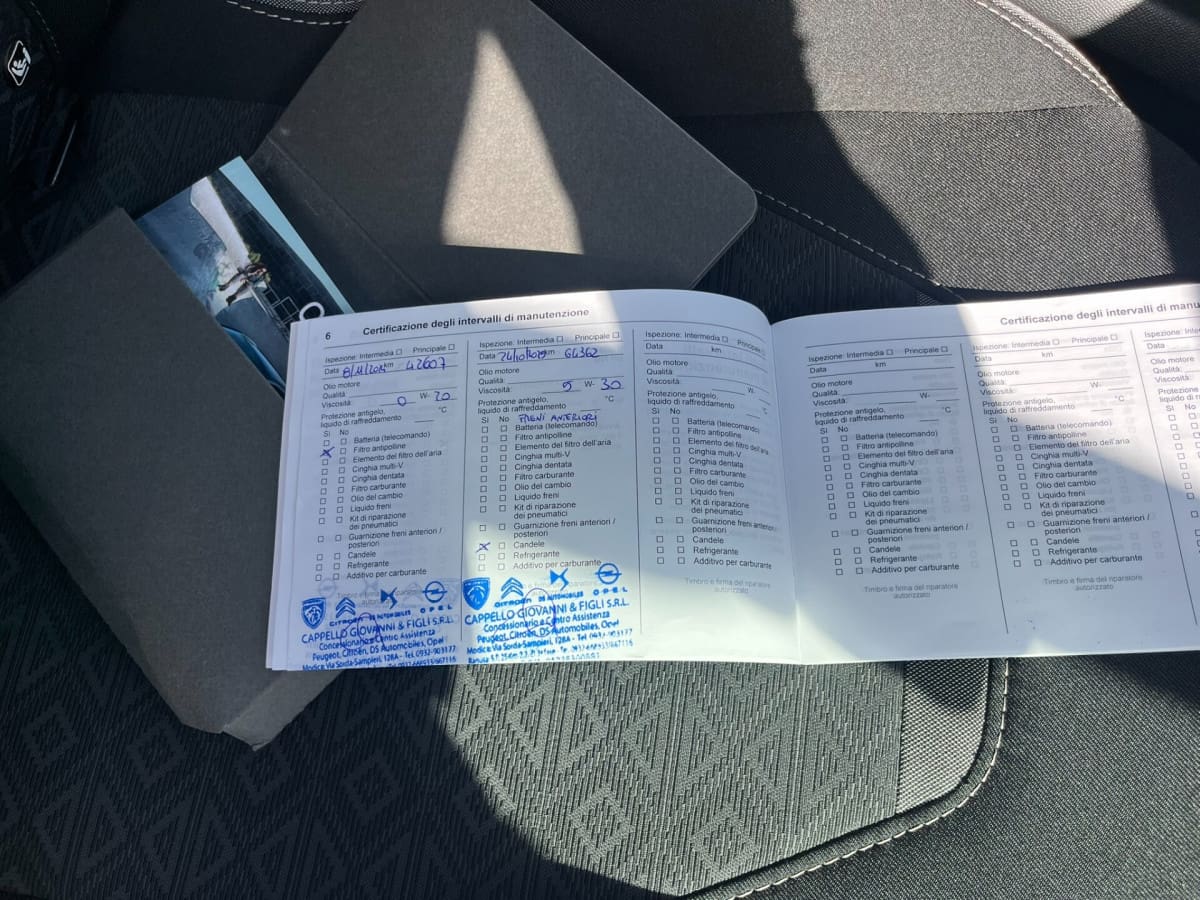 6
Certificazione degli intervalli di manutenzione
Ispezione: Intermedia Principale
Data km 42607
Olio motore
Qualità:
Viscosità: 0 W- 20
Protezione antigelo,
liquido di raffreddamento °C
Sì No
Batteria (telecomando)
Filtro antipolline
Elemento del filtro dell'aria
Cinghia multi-V
Cinghia dentata
Filtro carburante
Olio del cambio
Liquido freni
Kit di riparazione
dei pneumatici
Guarnizione freni anteriori /
posteriori
Candele
Refrigerante
Additivo per carburante
CITROËN DS AUTOMOBILES OPEL
CAPPELLO GIOVANNI & FIGLI S.R.L.
Concessionario e Centro Assistenza
Peugeot, Citroën, DS Automobiles, Opel
Modica: Via Sorda-Sampieri, 128A - Tel. 0932-903177
Ispezione: Intermedia Principale
Data km 64362
Olio motore
Qualità:
Viscosità: W- 30
Protezione antigelo, °C
liquido di raffreddamento
Sì No FRENI ANTERIORI
Batteria (telecomando)
Filtro antipolline
Elemento del filtro dell'aria
Cinghia multi-V
Cinghia dentata
Filtro carburante
Olio del cambio
Liquido freni
Kit di riparazione
dei pneumatici
Guarnizione freni anteriori /
posteriori
Candele
Refrigerante
Additivo per carburante
CITROËN DS AUTOMOBILES OPEL
CAPPELLO GIOVANNI & FIGLI S.R.L.
Concessionario e Centro Assistenza
Peugeot, Citroën, DS Automobiles, Opel
Modica: Via Sorda-Sampieri, 128A - Tel. 0932-903177
Ispezione: Intermedia Principale
Data km
Olio motore
Qualità:
Viscosità: W-
Protezione antigelo, °C
liquido di raffreddamento
Sì No
Batteria (telecomando)
Filtro antipolline
Elemento del filtro dell'aria
Cinghia multi-V
Cinghia dentata
Filtro carburante
Olio del cambio
Liquido freni
Kit di riparazione
dei pneumatici
Guarnizione freni anteriori /
posteriori
Candele
Refrigerante
Additivo per carburante
Timbro e firma del riparatore
autorizzato
Certificazione degli intervalli di manu
Ispezione: Intermedia Principale
Data km
Olio motore
Qualità:
Viscosità: W-
Protezione antigelo, °C
liquido di raffreddamento
Sì No
Batteria (telecomando)
Filtro antipolline
Elemento del filtro dell'aria
Cinghia multi-V
Cinghia dentata
Filtro carburante
Olio del cambio
Liquido freni
Kit di riparazione
dei pneumatici
Guarnizione freni anteriori /
posteriori
Candele
Refrigerante
Additivo per carburante
Timbro e firma del riparatore
autorizzato
Ispezione: Intermedia Principale
Data km
Olio motore
Qualità:
Viscosità: W-
Protezione antigelo, °C
liquido di raffreddamento
Sì No
Batteria (telecomando)
Filtro antipolline
Elemento del filtro dell'aria
Cinghia multi-V
Cinghia dentata
Filtro carburante
Olio del cambio
Liquido freni
Kit di riparazione
dei pneumatici
Guarnizione freni anteriori /
posteriori
Candele
Refrigerante
Additivo per carburante
Timbro e firma del riparatore
autorizzato
Data